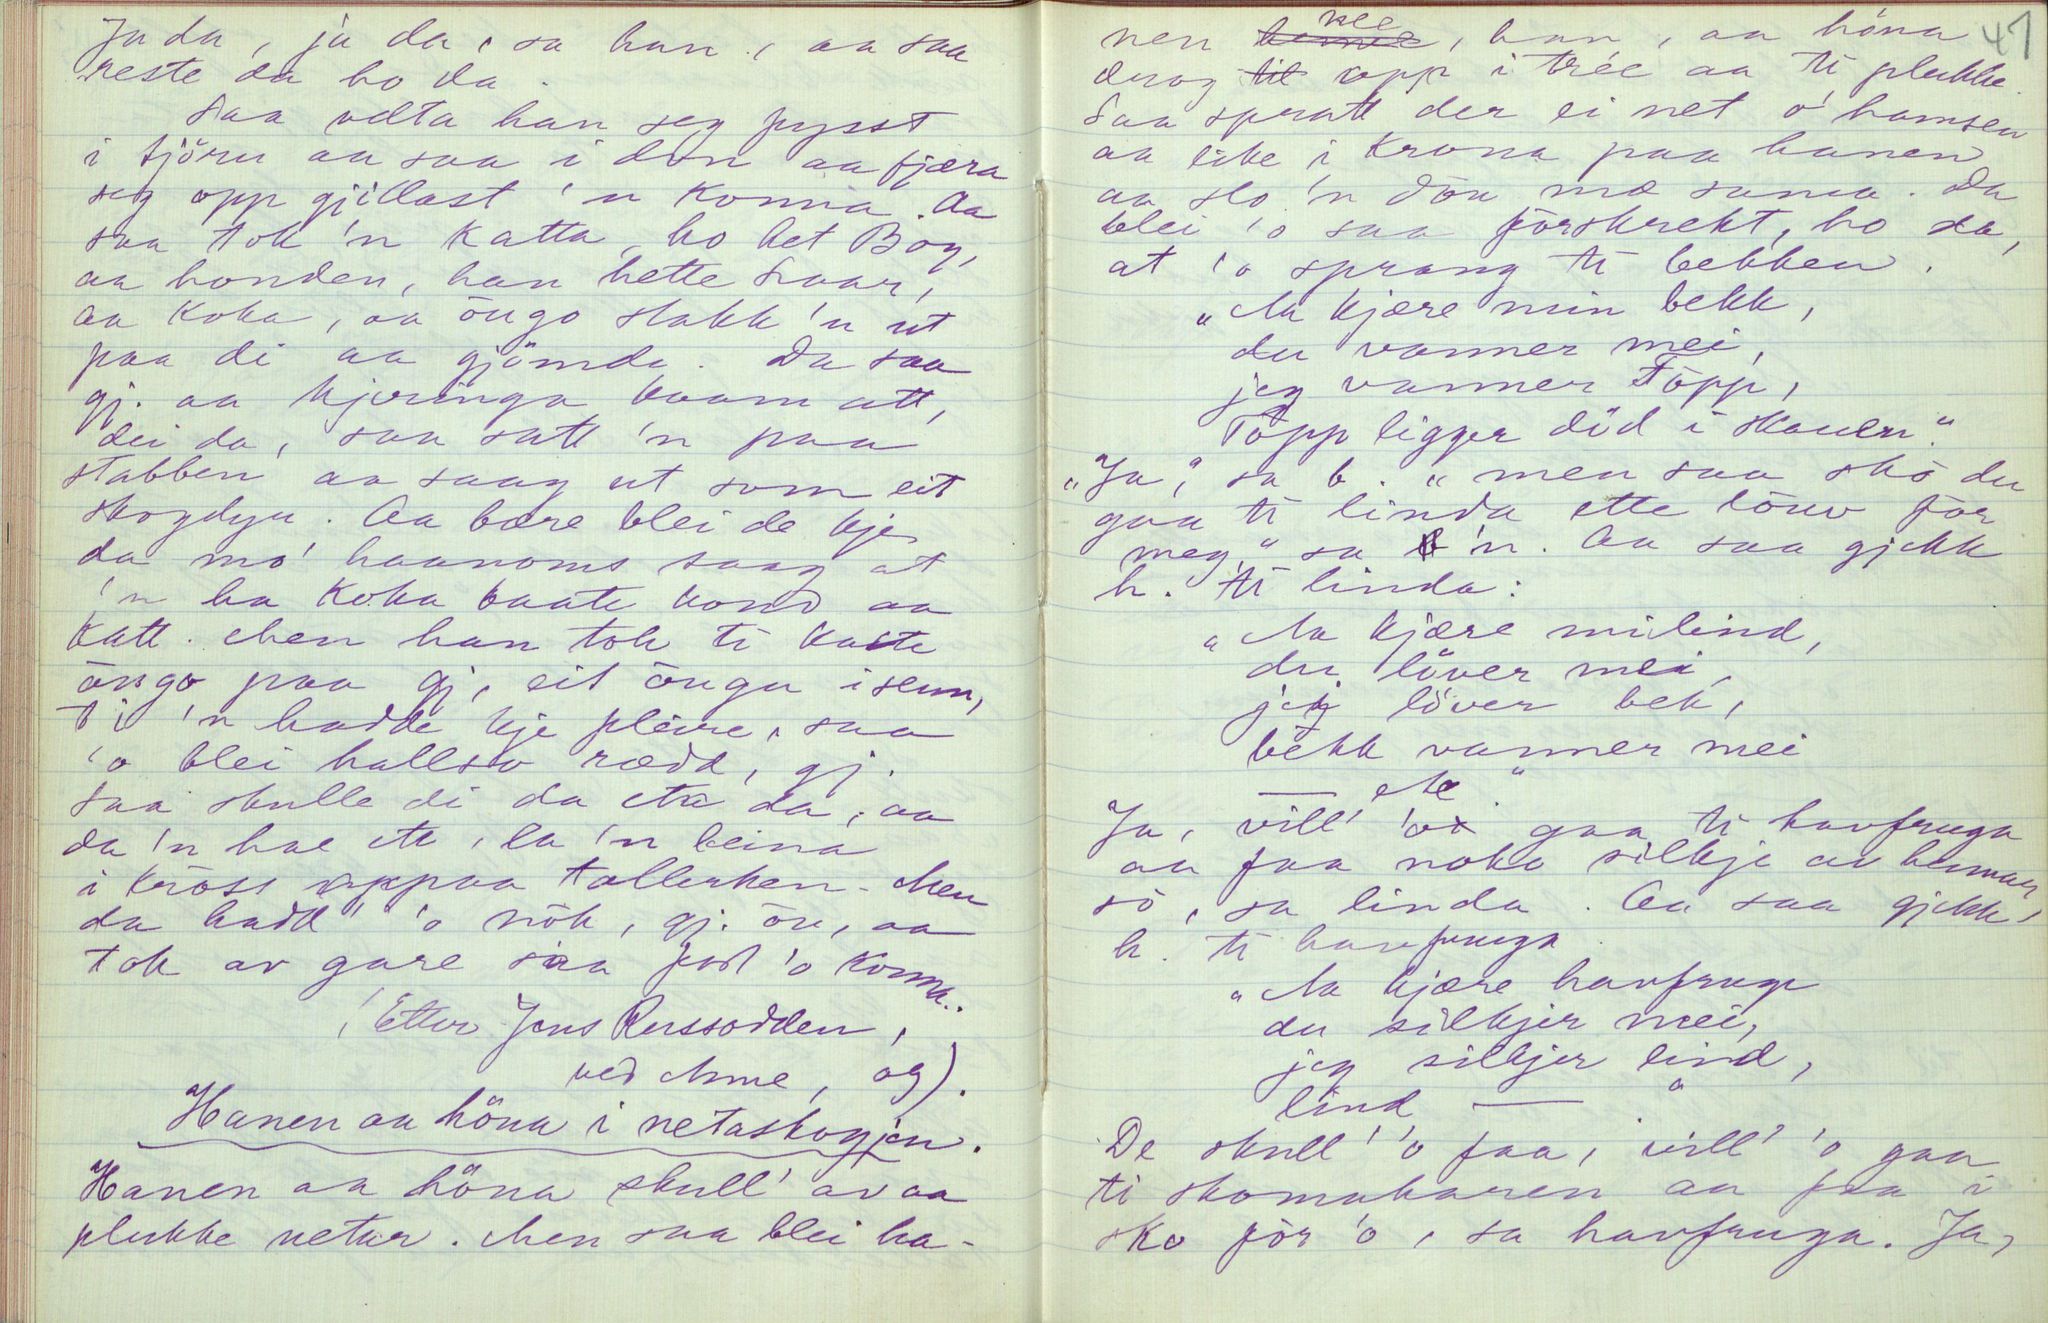 Ja da, ja da, sa han, aa saa
reste da ho da.
Saa velta han seg fysst
i tjöru aa saa i dun aa fjæra
seg opp gjillast 'n konna. Aa
saa tok 'n katta, ho het Boy,
aa honden, han hette Svar,
aa koka, aa öngo stakk 'n ut
paa di aa gjömde. Da saa
gj. aa kjeringa kaam att,
dei da, saa satt 'n paa
stabben aa saag ut som eit
skogdyr. Aa bære blei de kje
da mo' haanoms saag at
'n ha koka baate hond aa
katt. Men han tok ti kaste
öngo paa gj, eit öngu isenn,
di 'n hadde kje pleire, saa
'o blei hallso rædd, gj.
Saa skulle di da eta da, aa
da 'n hae ete, la 'n beina
i kröss oppaa tallerken. Men
da hadd' 'o nök, gj. ön, aa
tok av gare saa fort 'o konna.
(Etter Jens Russodden,
ved Anne, og).
Hanen aa höna i netaskogjen.
Hanen aa höna skull' av aa
plukke netar. Men saa blei ha-
47
nen nee, han, aa höna
drog opp i trée aa ti plukke.
Saa spratt der ei net o' hamsen
aa like i krona paa hanen
aa slo 'n döu mæ sama. Da
blei 'o saa förskrekt, ho da,
at 'o sprang ti bekken.
"Aa kjære min bekk,
du vanner mei,
jeg vanner Töpp,
Töpp ligger död i skauen."
"Ja," sa b. "men saa skö du
gaa ti linda ette löuv för
meg," sa 'n. Aa saa gjekk
h. ti linda:
"Aa kjære mi lind,
du löver mei
jeg löver bek,
bekk vanner mei
— etc"
Ja, vill' 'o gaa ti havfruga
aa faa noko silkje av henner
sö, sa linda. Aa saa gjekk
h. ti havfruga
"Aa kjære havfruge
du silkjer mei,
jeg silkjer lind,
lind — "
De skull' 'o faa, vill' 'o gaa
ti skomakaren aa faa i
sko för 'o, sa havfruga. Ja,